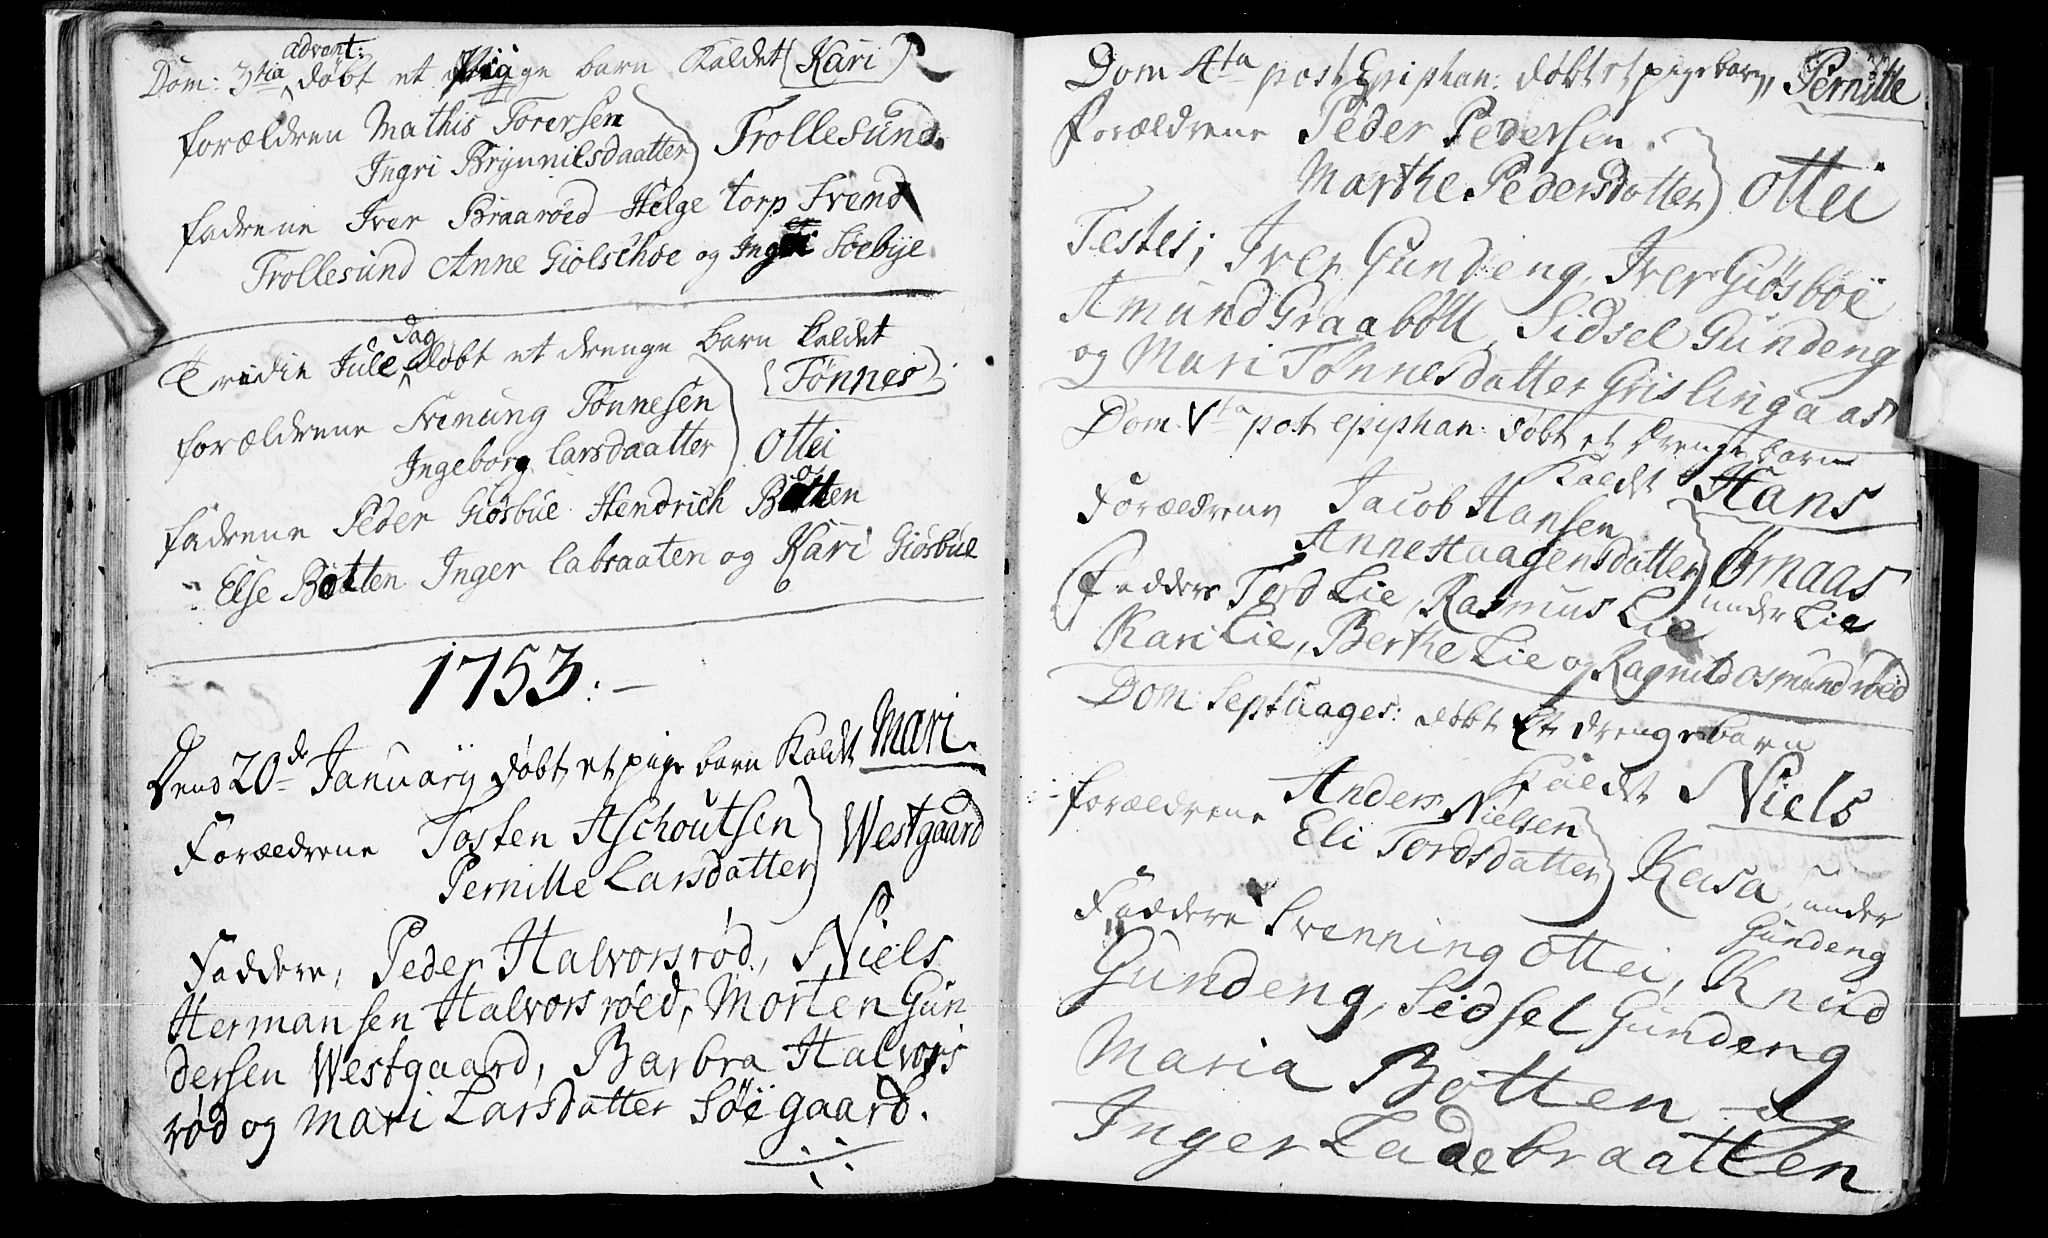 advent:
Dom: 3tia døbt et pige barn Kaldet (Kari)
forældren Mathis Torersen
Trollesund.
Ingri Brynnilsdaatter
fadrene Iver Braarøed Helge torp Svend
Trollesund Anne Giølschøe og Inger Søebye
dag
Tredie Jule døbt et drenge barn kaldet
(Tønnes)
forældrene Svenung Tønnesen
Ottei
Ingeborg larsdaatter
fadrene Peder Giøsbüe Hendrich Botten
Else Botten Inger labraaten og Kari Giøsbüe
1753:-
Dend 20de Januarij døbt et pige barn Kaldt Mari.
Forældrene Tosten Aschoutsen
Westgaard
Pernille Larsdatter
Faddere, Peder Halvorsrød, Niels
Hermansen Halvorsrøed, Morten Gun
dersen Westgaard, Barbra Halvors
rød og Mari Larsdatter Søigaard.
Dom 4ta post Epiphan: døbt et pige barn, Pernille
Forældrene Peder Pedersen.
Marthe Pedersdatter Ottei
Testes; Iver Gundeng, Iver Giøsböe
Amund Graaböll, Sidsel Gundeng
og Mari Tønnesdatter Grislingaas
Dom Vta pot epiphan: døbt et drenge barn
kaldt Hans
Forældrene Jacob Hansen
Anne Haagensdatter Örnaas
under Lie
Faddere Tord Lie, Rasmus Lie
Kari Lie, Berthe Lie og Ragnild Osmundrøed
Dom: Septuages: døbt Et drenge barn
kaldt Niels
forældrene Anders Nielsen
Eli Tordsdatter Keisa, under
Gundeng
Faddere Svenning Ottei, Knud
Gundeng, Sidsel Gundeng
Maria Botten og
Inger Ladebraatten